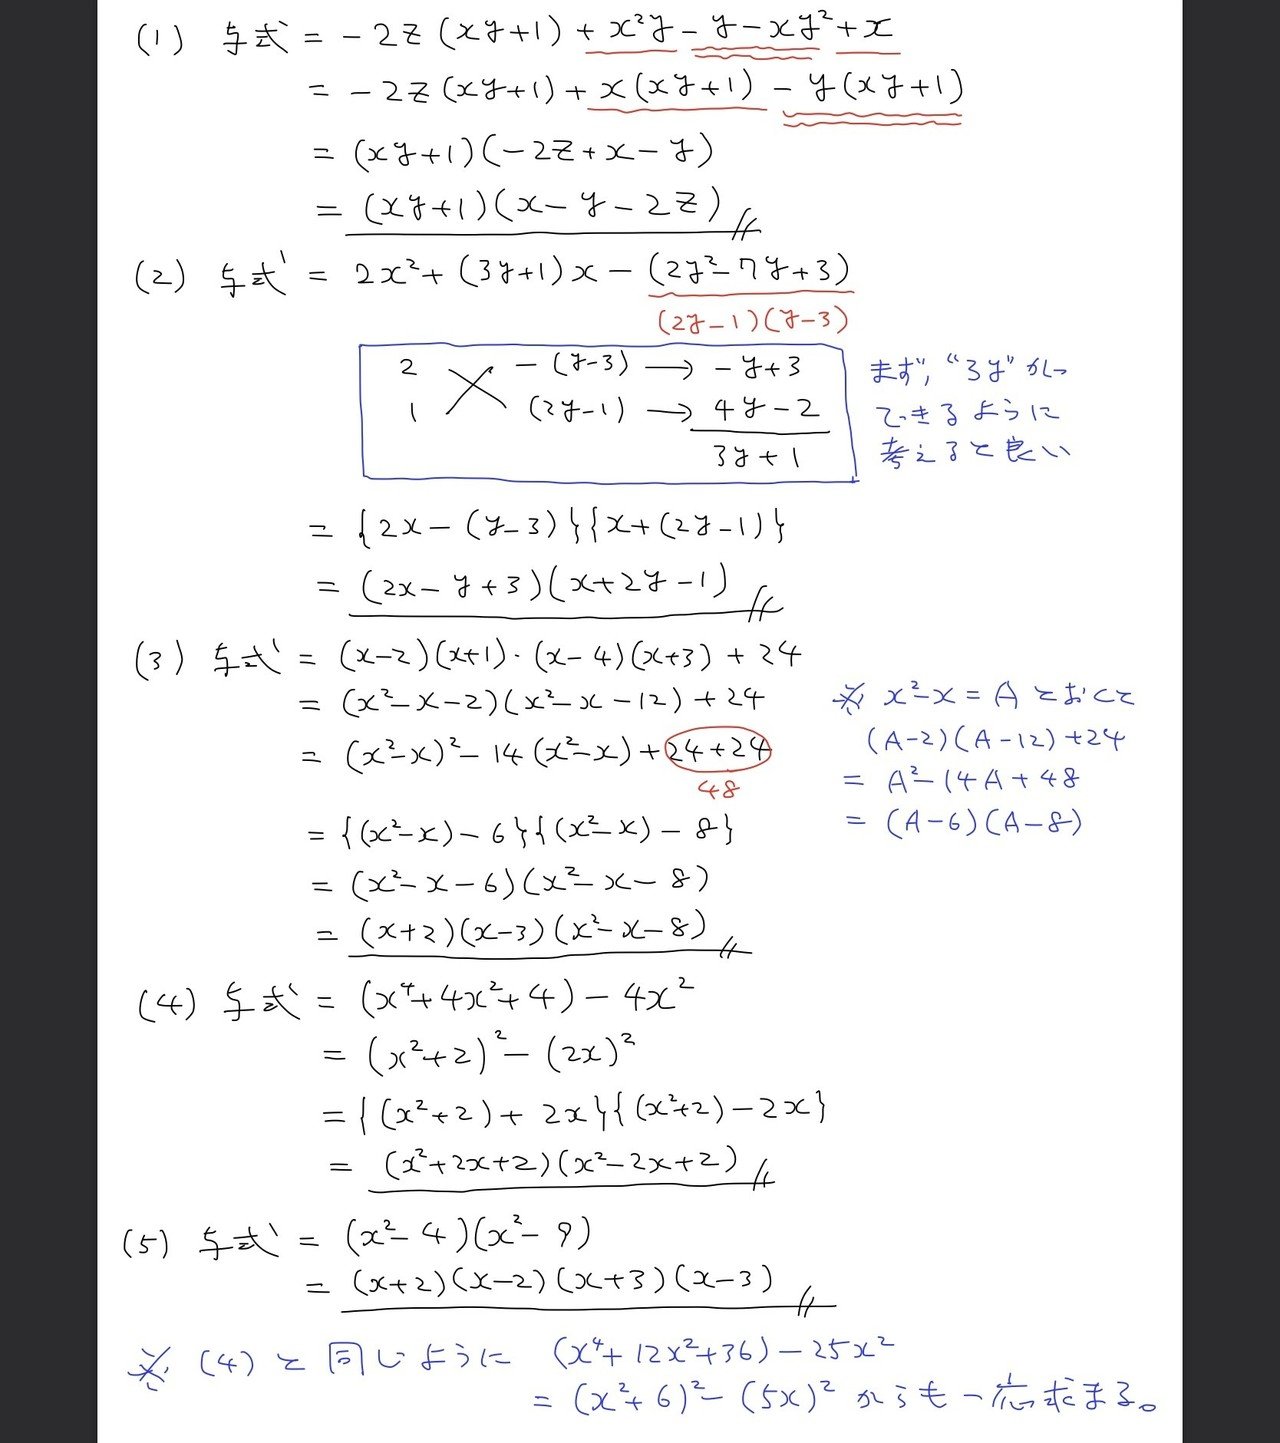 (1) 与式 = -2z(xy+1)+x²y-y-xy²+x
= -2z(xy+1)+x(xy+1)-y(xy+1)
= (xy+1)(-2z+x-y)
= (xy+1)(x-y-2z)
(2) 与式 = 2x²+(3y+1)x-(2y²-7y+3)
(2y-1)(y-3)
2 -(y-3) → -y+3
1 (2y-1) → 4y-2
3y+1
まず, “3y”が
できるように
考えると良い
= {2x-(y-3)}{x+(2y-1)}
= (2x-y+3)(x+2y-1)
(3) 与式 = (x-2)(x+1)・(x-4)(x+3)+24
= (x²-x-2)(x²-x-12)+24
= (x²-x)²-14(x²-x)+24+24
48
= {(x²-x)-6}{(x²-x)-8}
= (x²-x-6)(x²-x-8)
= (x+2)(x-3)(x²-x-8)
※ x²-x=Aとおくと
(A-2)(A-12)+24
= A²-14A+48
= (A-6)(A-8)
(4) 与式 = (x⁴+4x²+4)-4x²
= (x²+2)²-(2x)²
= {(x²+2)+2x}{(x²+2)-2x}
= (x²+2x+2)(x²-2x+2)
(5) 与式 = (x²-4)(x²-9)
= (x+2)(x-2)(x+3)(x-3)
※ (4)と同じように (x⁴+12x²+36)-25x²
= (x²+6)²-(5x)² からも一応求まる。